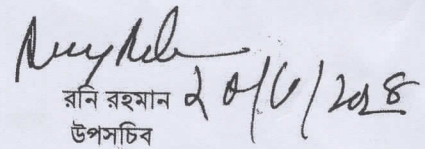 রনি রহমান ২০/৬/২০২৪
উপসচিব